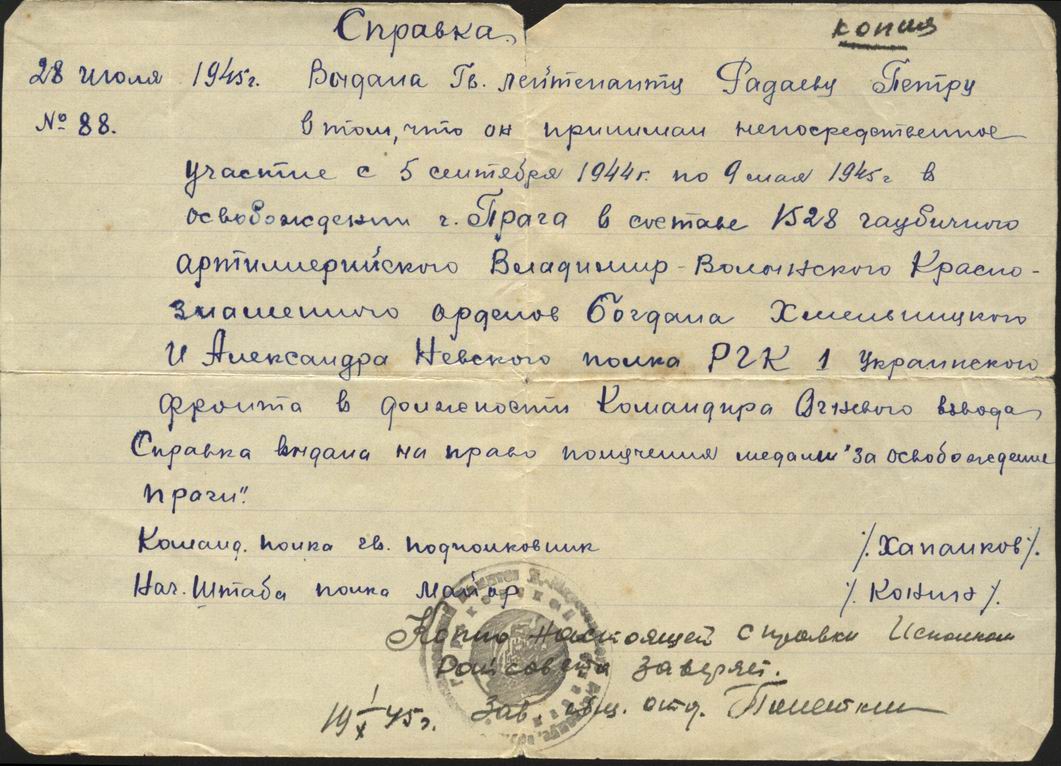 Справка
копия
28 июля 1945г. Выдана Гв. лейтенанту Фадаеву Петру
№ 88. в том, что он принимал непосредственное
участие с 5 сентября 1944г. по 9 мая 1945г в
освобождении г. Прага в составе 1528 гаубичного
артиллерийского Владимир-Волынского Красно-
знаменного орденов Богдана Хмельницкого
И Александра Невского полка РГК 1 Украинского
фронта в должности Командира Огневого взвода
Справка выдана на право получения медали "За освобождение
Праги".
Команд. полка гв. подполковник /. Хапалков/.
Нач. Штаба полка Майор /. Конин/.
Копию настоящей справки Исполком
Райсовета заверяет.
19 1/X 45г. Зав. общ. отд.